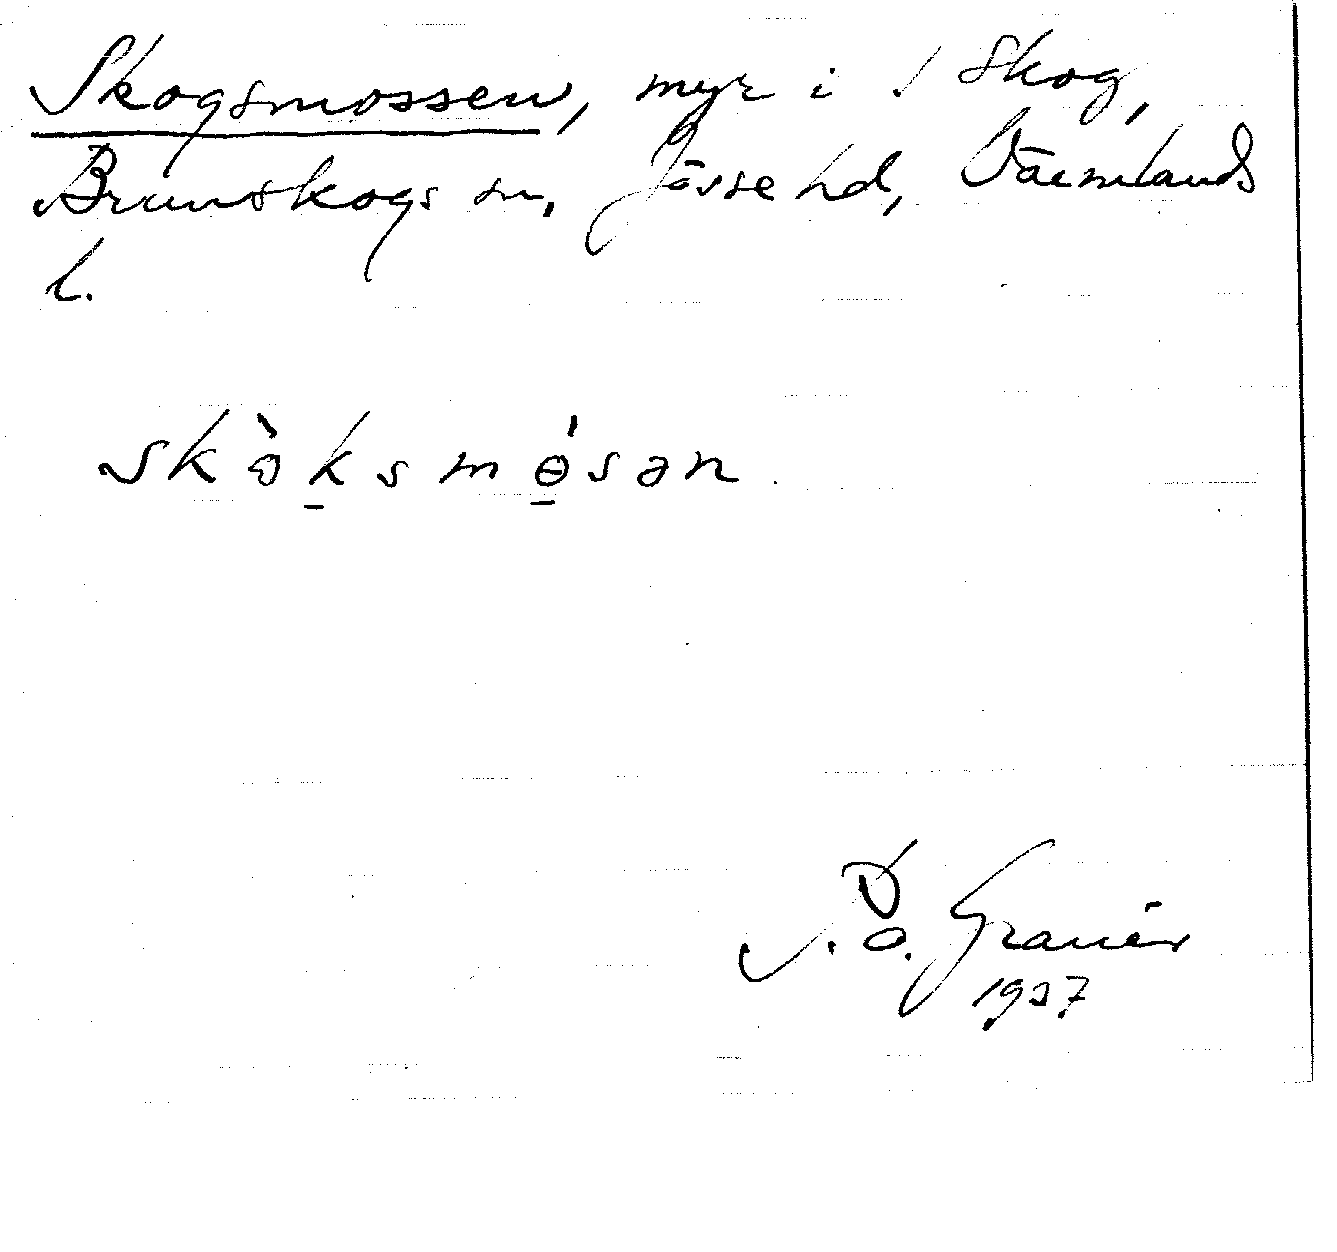 Skogsmossen, myr i / Skog,
Brunskogs sn, Jösse hd, Värmlands
l.
skὼksmɵ́sən.
S. O. Granér
1937